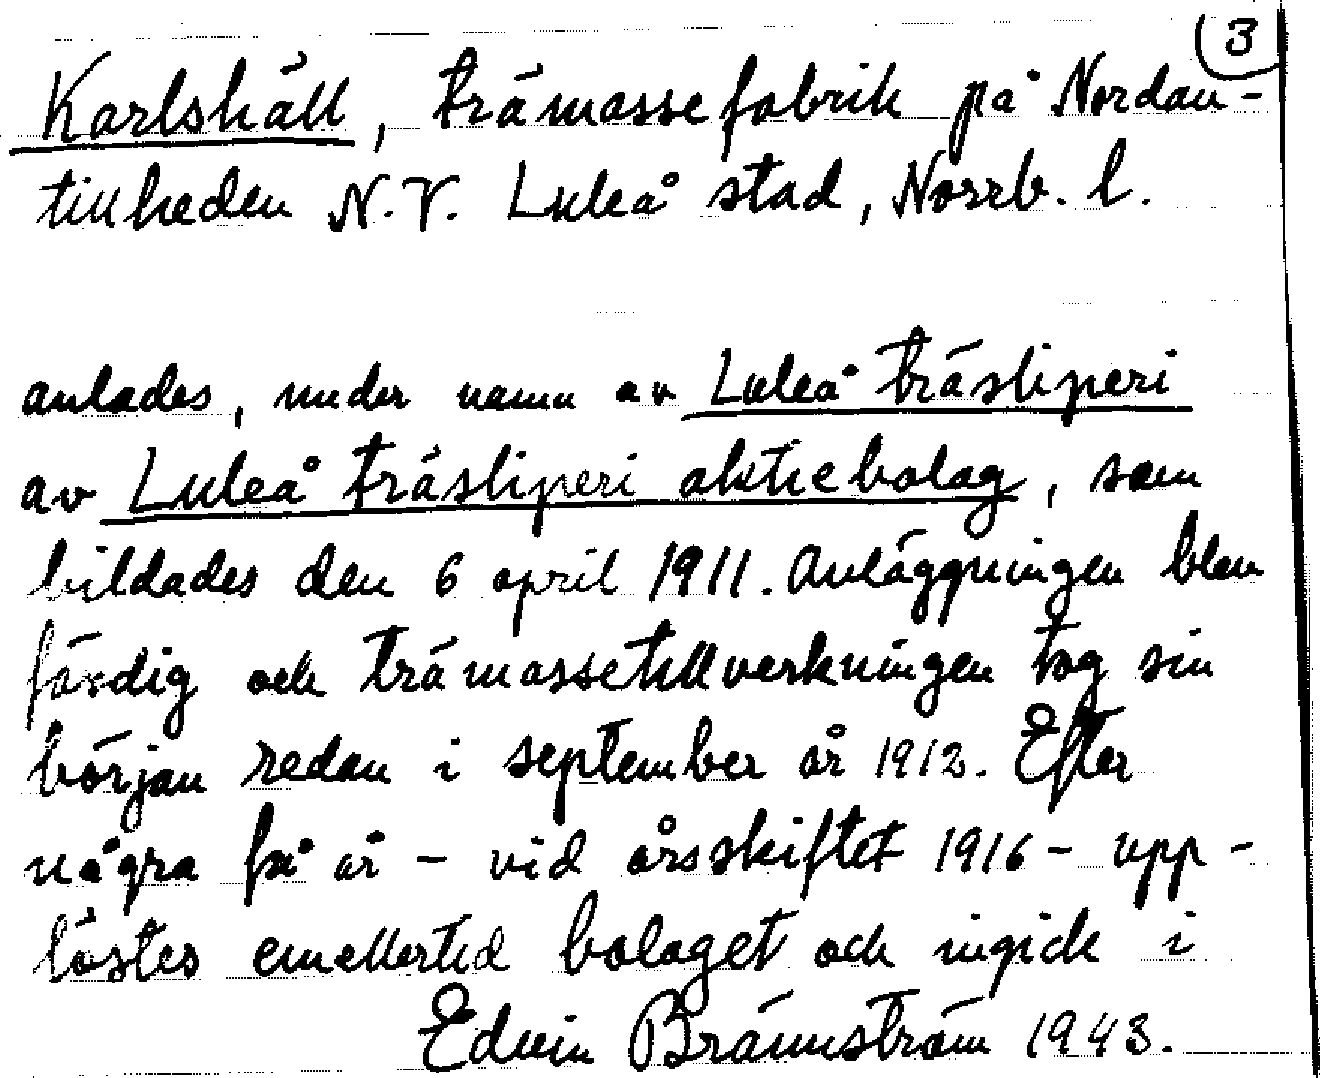 3
Karlshäll, trämassefabrik på Nordan-
tillheden N.V. Luleå stad, Norrb. l.
anlades, under namn av Luleå träsliperi
av Luleå träsliperi aktiebolag, som
bildades den 6 april 1911. Anläggningen blev
färdig och trämassetillverkningen tog sin
början redan i september år 1912. Efter
några få år - vid årsskiftet 1916 - upp-
löstes emellertid bolaget och ingick i
Edvin Brännström 1943.